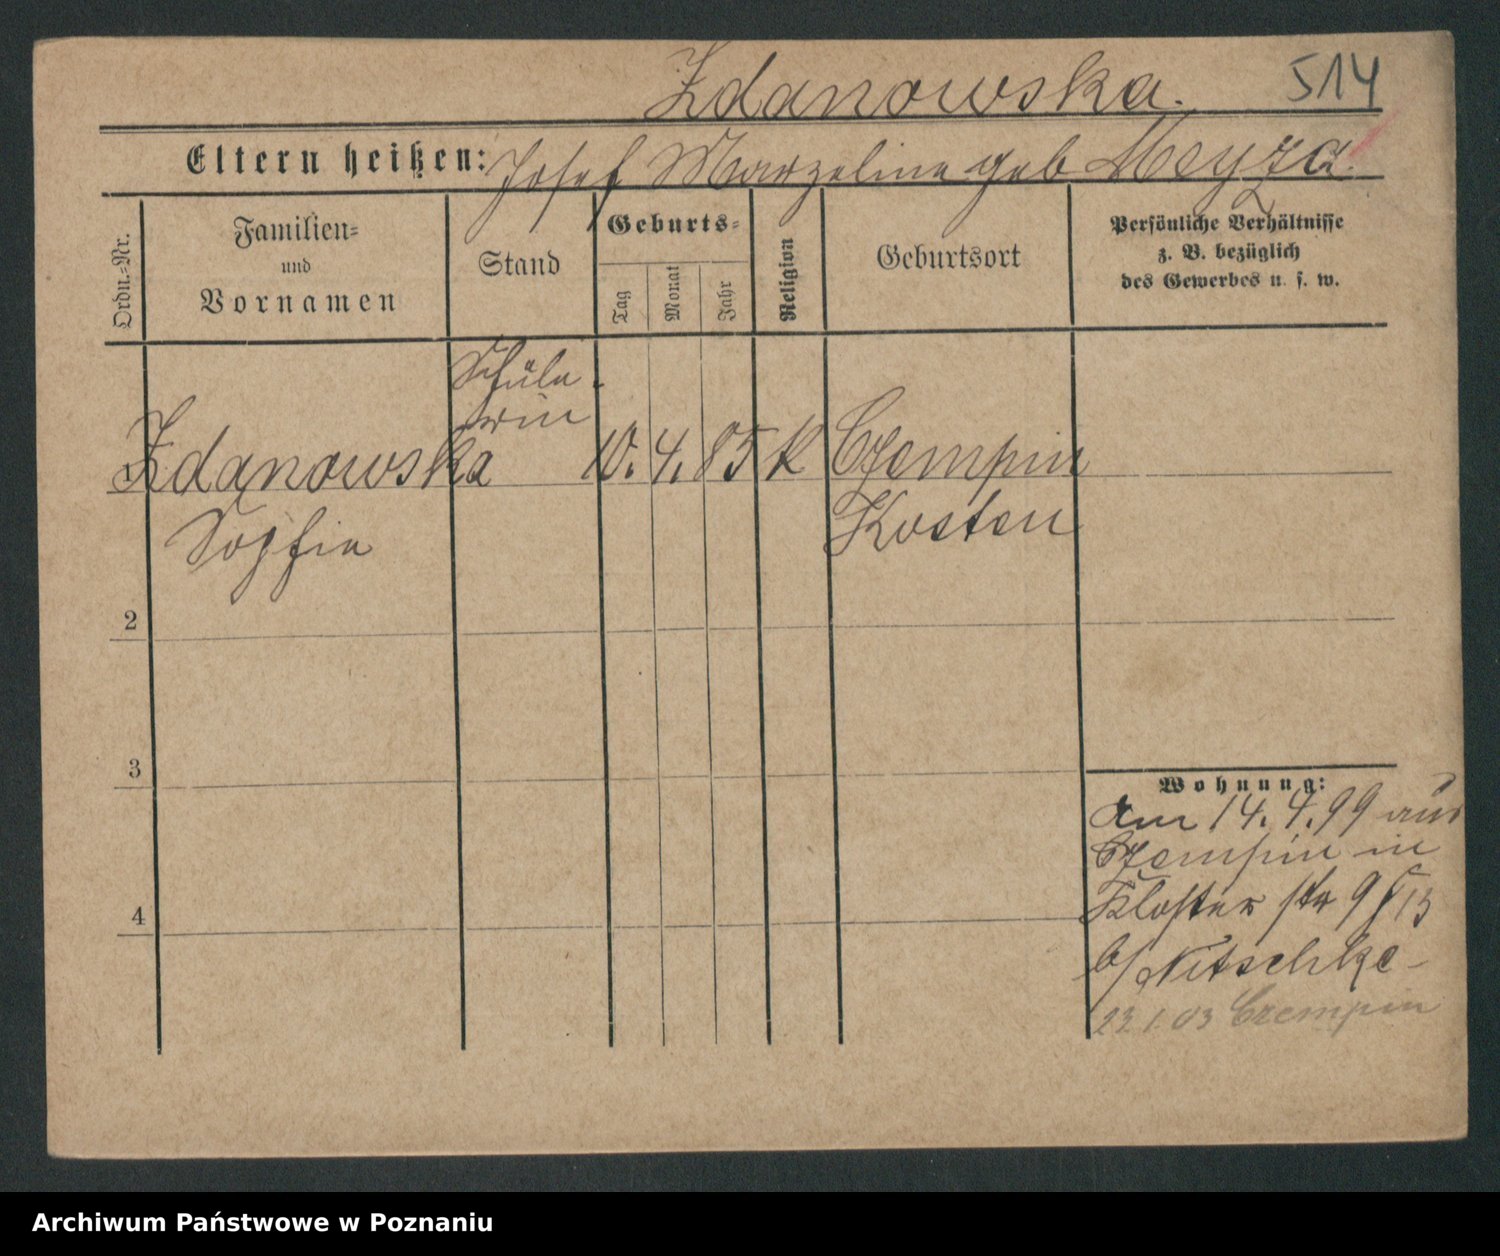 Zdanowska. 514
Eltern heißen: Josef Marzeline geb Meyza.
Ordn.-Nr.
Familien-
und
Vornamen
Stand
Geburts-
Tag
Monat
Jahr
Religion
Geburtsort
Persönliche Verhältnisse
z. B. bezüglich
des Gewerbes u. s. w.
Schüle-
rin
1 Zdanowska 10. 4. 85 k Czempin
Sophie Kosten
2
3
4
Wohnung:
am 14. 4. 99 aus
Czempin in
Kloster str 9
b/ Nitschke
23 1. 03 Czempin
Archiwum Państwowe w Poznaniu